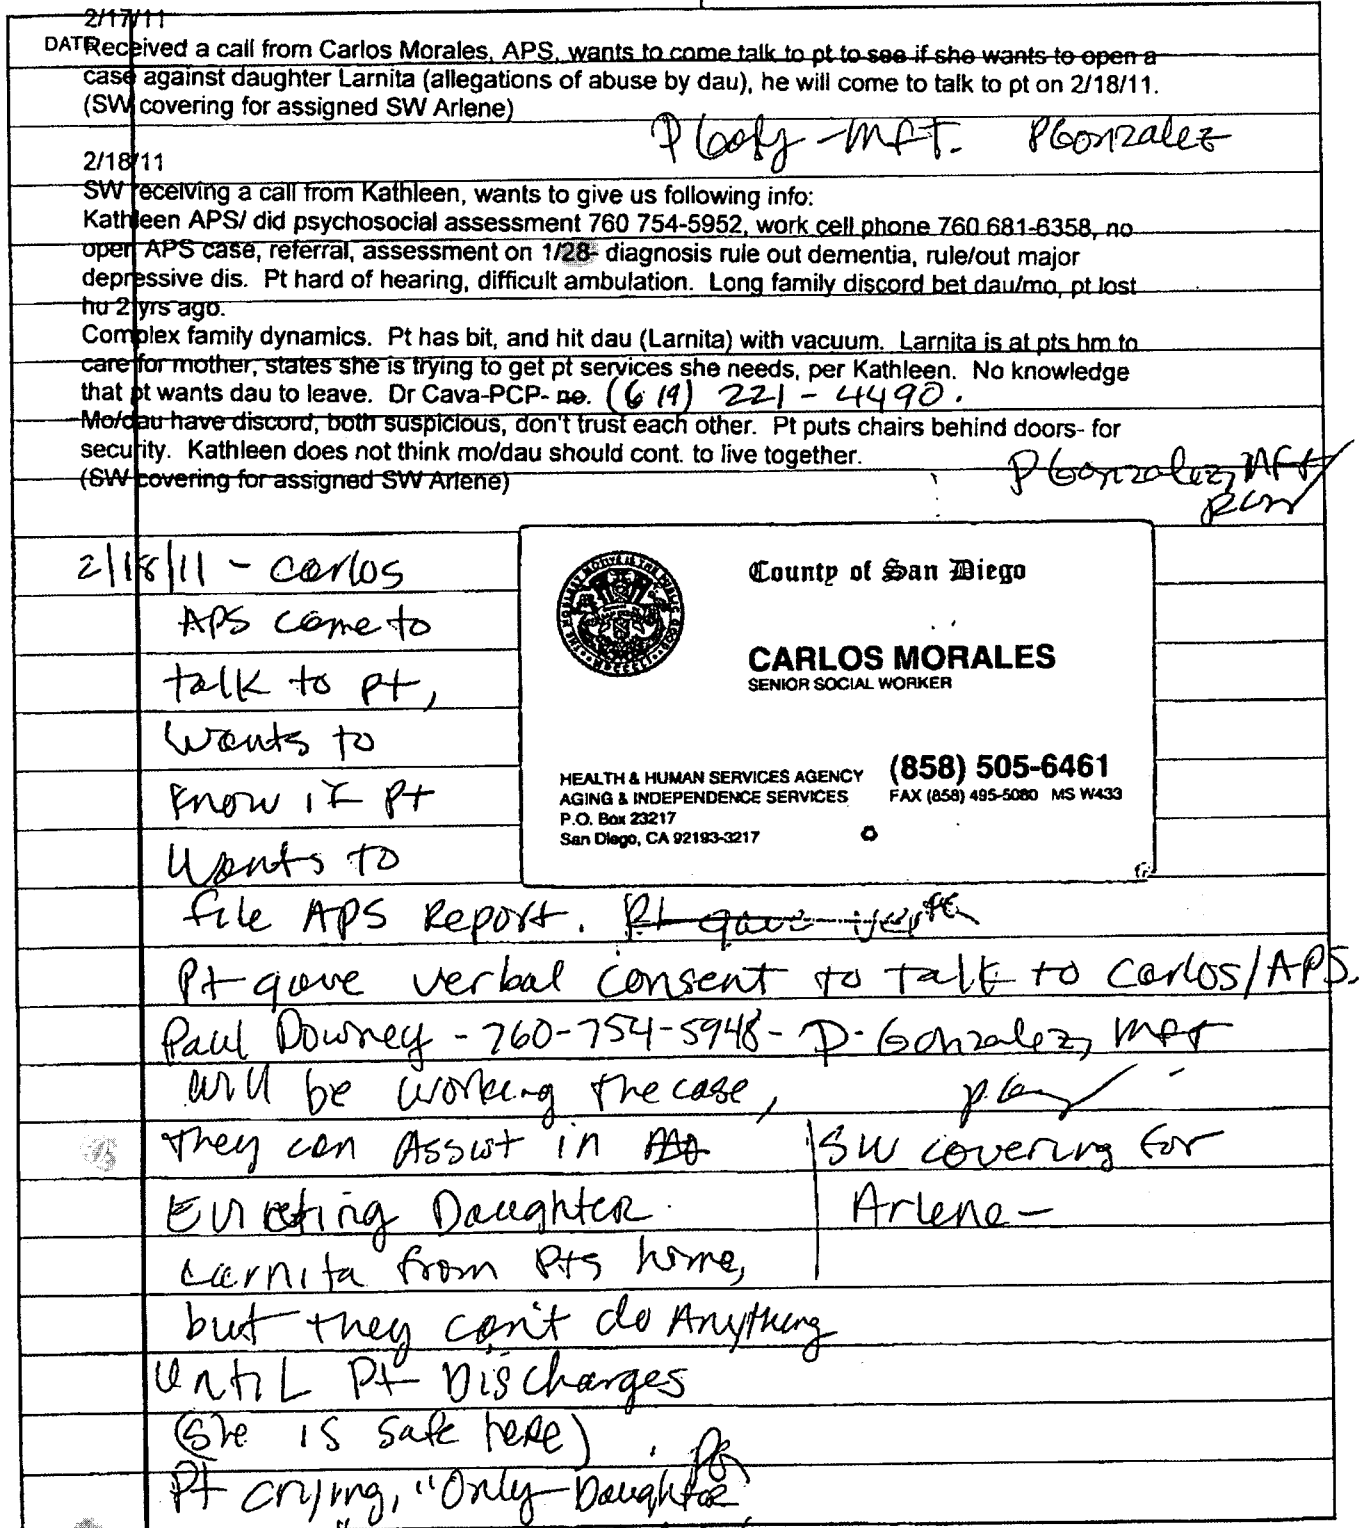 2/17/11
DATE
Received a call from Carlos Morales, APS, wants to come talk to pt to see if she wants to open a
case against daughter Larnita (allegations of abuse by dau), he will come to talk to pt on 2/18/11.
(SW covering for assigned SW Arlene)
MFT. PGonzalez
2/18/11
SW receiving a call from Kathleen, wants to give us following info:
Kathleen APS/ did psychosocial assessment 760 754-5952, work cell phone 760 681-6358, no
open APS case, referral, assessment on 1/28- diagnosis rule out dementia, rule/out major
depressive dis. Pt hard of hearing, difficult ambulation. Long family discord bet dau/mo, pt lost
hu 2 yrs ago.
Complex family dynamics. Pt has bit, and hit dau (Larnita) with vacuum. Larnita is at pts hm to
care for mother, states she is trying to get pt services she needs, per Kathleen. No knowledge
that pt wants dau to leave. Dr Cava-PCP- no. (619) 221-4490.
Mo/dau have discord, both suspicious, don't trust each other. Pt puts chairs behind doors- for
security. Kathleen does not think mo/dau should cont. to live together.
(SW covering for assigned SW Arlene)
P Gonzalez, MFT
2/18/11 - Carlos
APS came to
talk to pt,
wants to
know if pt
wants to
County of San Diego
CARLOS MORALES
SENIOR SOCIAL WORKER
HEALTH & HUMAN SERVICES AGENCY (858) 505-6461
AGING & INDEPENDENCE SERVICES FAX (858) 495-5080 MS W433
P.O. Box 23217
San Diego, CA 92193-3217
file APS Report. Pt gave ver
Pt gave verbal consent to talk to Carlos/APS.
Paul Downey - 760-754-5948 - P. Gonzalez, MFT
will be working the case,
they can Assist in
SW covering for
Evicting Daughter
Arlene -
Larnita from Pts home,
but they can't do Anything
until Pt Discharges
(She is safe here).
Pt crying, "Only Daughter